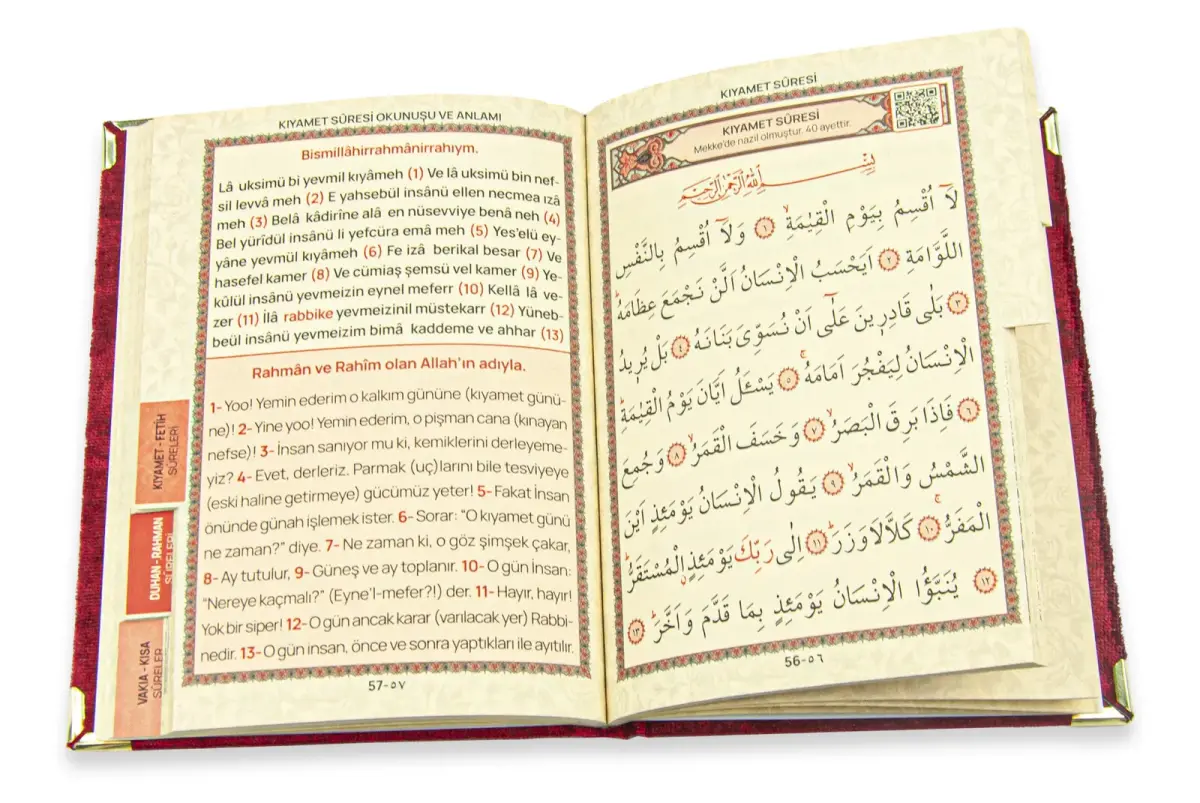 KIYAMET SÛRESİ OKUNUŞU VE ANLAMI
Bismillâhirrahmânirrahıym.
Lâ uksimü bi yevmil kıyâmeh (1) Ve lâ uksimü bin nef-
sil levvâ meh (2) E yahsebül insânü ellen necmea ızâ
meh (3) Belâ kâdirîne alâ en nüsevviye benâ neh (4)
Bel yürîdül insânü li yefcüra emâ meh (5) Yes'elü ey-
yâne yevmül kıyâmeh (6) Fe izâ berikal besar (7) Ve
hasefel kamer (8) Ve cümiaş şemsü vel kamer (9) Ye-
kûlül insânü yevmeizin eynel meferr (10) Kellâ lâ ve-
zer (11) İlâ rabbike yevmeizinil müstekarr (12) Yüneb-
beül insânü yevmeizim bimâ kaddeme ve ahhar (13)
Rahmân ve Rahîm olan Allah'ın adıyla.
1- Yoo! Yemin ederim o kalkım gününe (kıyamet günü-
ne)! 2- Yine yoo! Yemin ederim, o pişman cana (kınayan
nefse)! 3- İnsan sanıyor mu ki, kemiklerini derleyeme-
yiz? 4- Evet, derleriz. Parmak (uç)larını bile tesviyeye
(eski haline getirmeye) gücümüz yeter! 5- Fakat İnsan
önünde günah işlemek ister. 6- Sorar: "O kıyamet günü
ne zaman?" diye. 7- Ne zaman ki, o göz şimşek çakar,
8- Ay tutulur, 9- Güneş ve ay toplanır. 10- O gün İnsan:
"Nereye kaçmalı?" (Eyne'l-mefer?!) der. 11- Hayır, hayır!
Yok bir siper! 12- O gün ancak karar (varılacak yer) Rabbi-
nedir. 13- O gün insan, önce ve sonra yaptıkları ile ayıtılır.
57-٥٧
KIYAMET - FETİH
SÛRELERİ
DUHAN - RAHMAN
SÛRELERİ
VAKIA - KISA
SÛRELER
KIYAMET SÛRESİ
KIYAMET SÛRESİ
Mekke'de nazil olmuştur. 40 ayettir.
بِسْمِ اللّٰهِ الرَّحْمٰنِ الرَّحِيمِ
لَٓا اُقْسِمُ بِيَوْمِ الْقِيٰمَةِۙ ﴿١﴾ وَلَٓا اُقْسِمُ بِالنَّفْسِ
اللَّوَّامَةِ ﴿٢﴾ اَيَحْسَبُ الْاِنْسَانُ اَلَّنْ نَجْمَعَ عِظَامَهُۜ
﴿٣﴾ بَلٰى قَادِر۪ينَ عَلٰٓى اَنْ نُسَوِّيَ بَنَانَهُ ﴿٤﴾ بَلْ يُر۪يدُ
الْاِنْسَانُ لِيَفْجُرَ اَمَامَهُۚ ﴿٥﴾ يَسْـَٔلُ اَيَّانَ يَوْمُ الْقِيٰمَةِۜ
﴿٦﴾ فَاِذَا بَرِقَ الْبَصَرُۙ ﴿٧﴾ وَخَسَفَ الْقَمَرُۙ ﴿٨﴾ وَجُمِعَ
الشَّمْسُ وَالْقَمَرُۙ ﴿٩﴾ يَقُولُ الْاِنْسَانُ يَوْمَئِذٍ اَيْنَ
الْمَفَرُّۚ ﴿١٠﴾ كَلَّا لَا وَزَرَۜ ﴿١١﴾ اِلٰى رَبِّكَ يَوْمَئِذٍۨ الْمُسْتَقَرُّۜ
﴿١٢﴾ يُنَبَّؤُا الْاِنْسَانُ يَوْمَئِذٍ بِمَا قَدَّمَ وَاَخَّرَۜ ﴿١٣﴾
56-٥٦